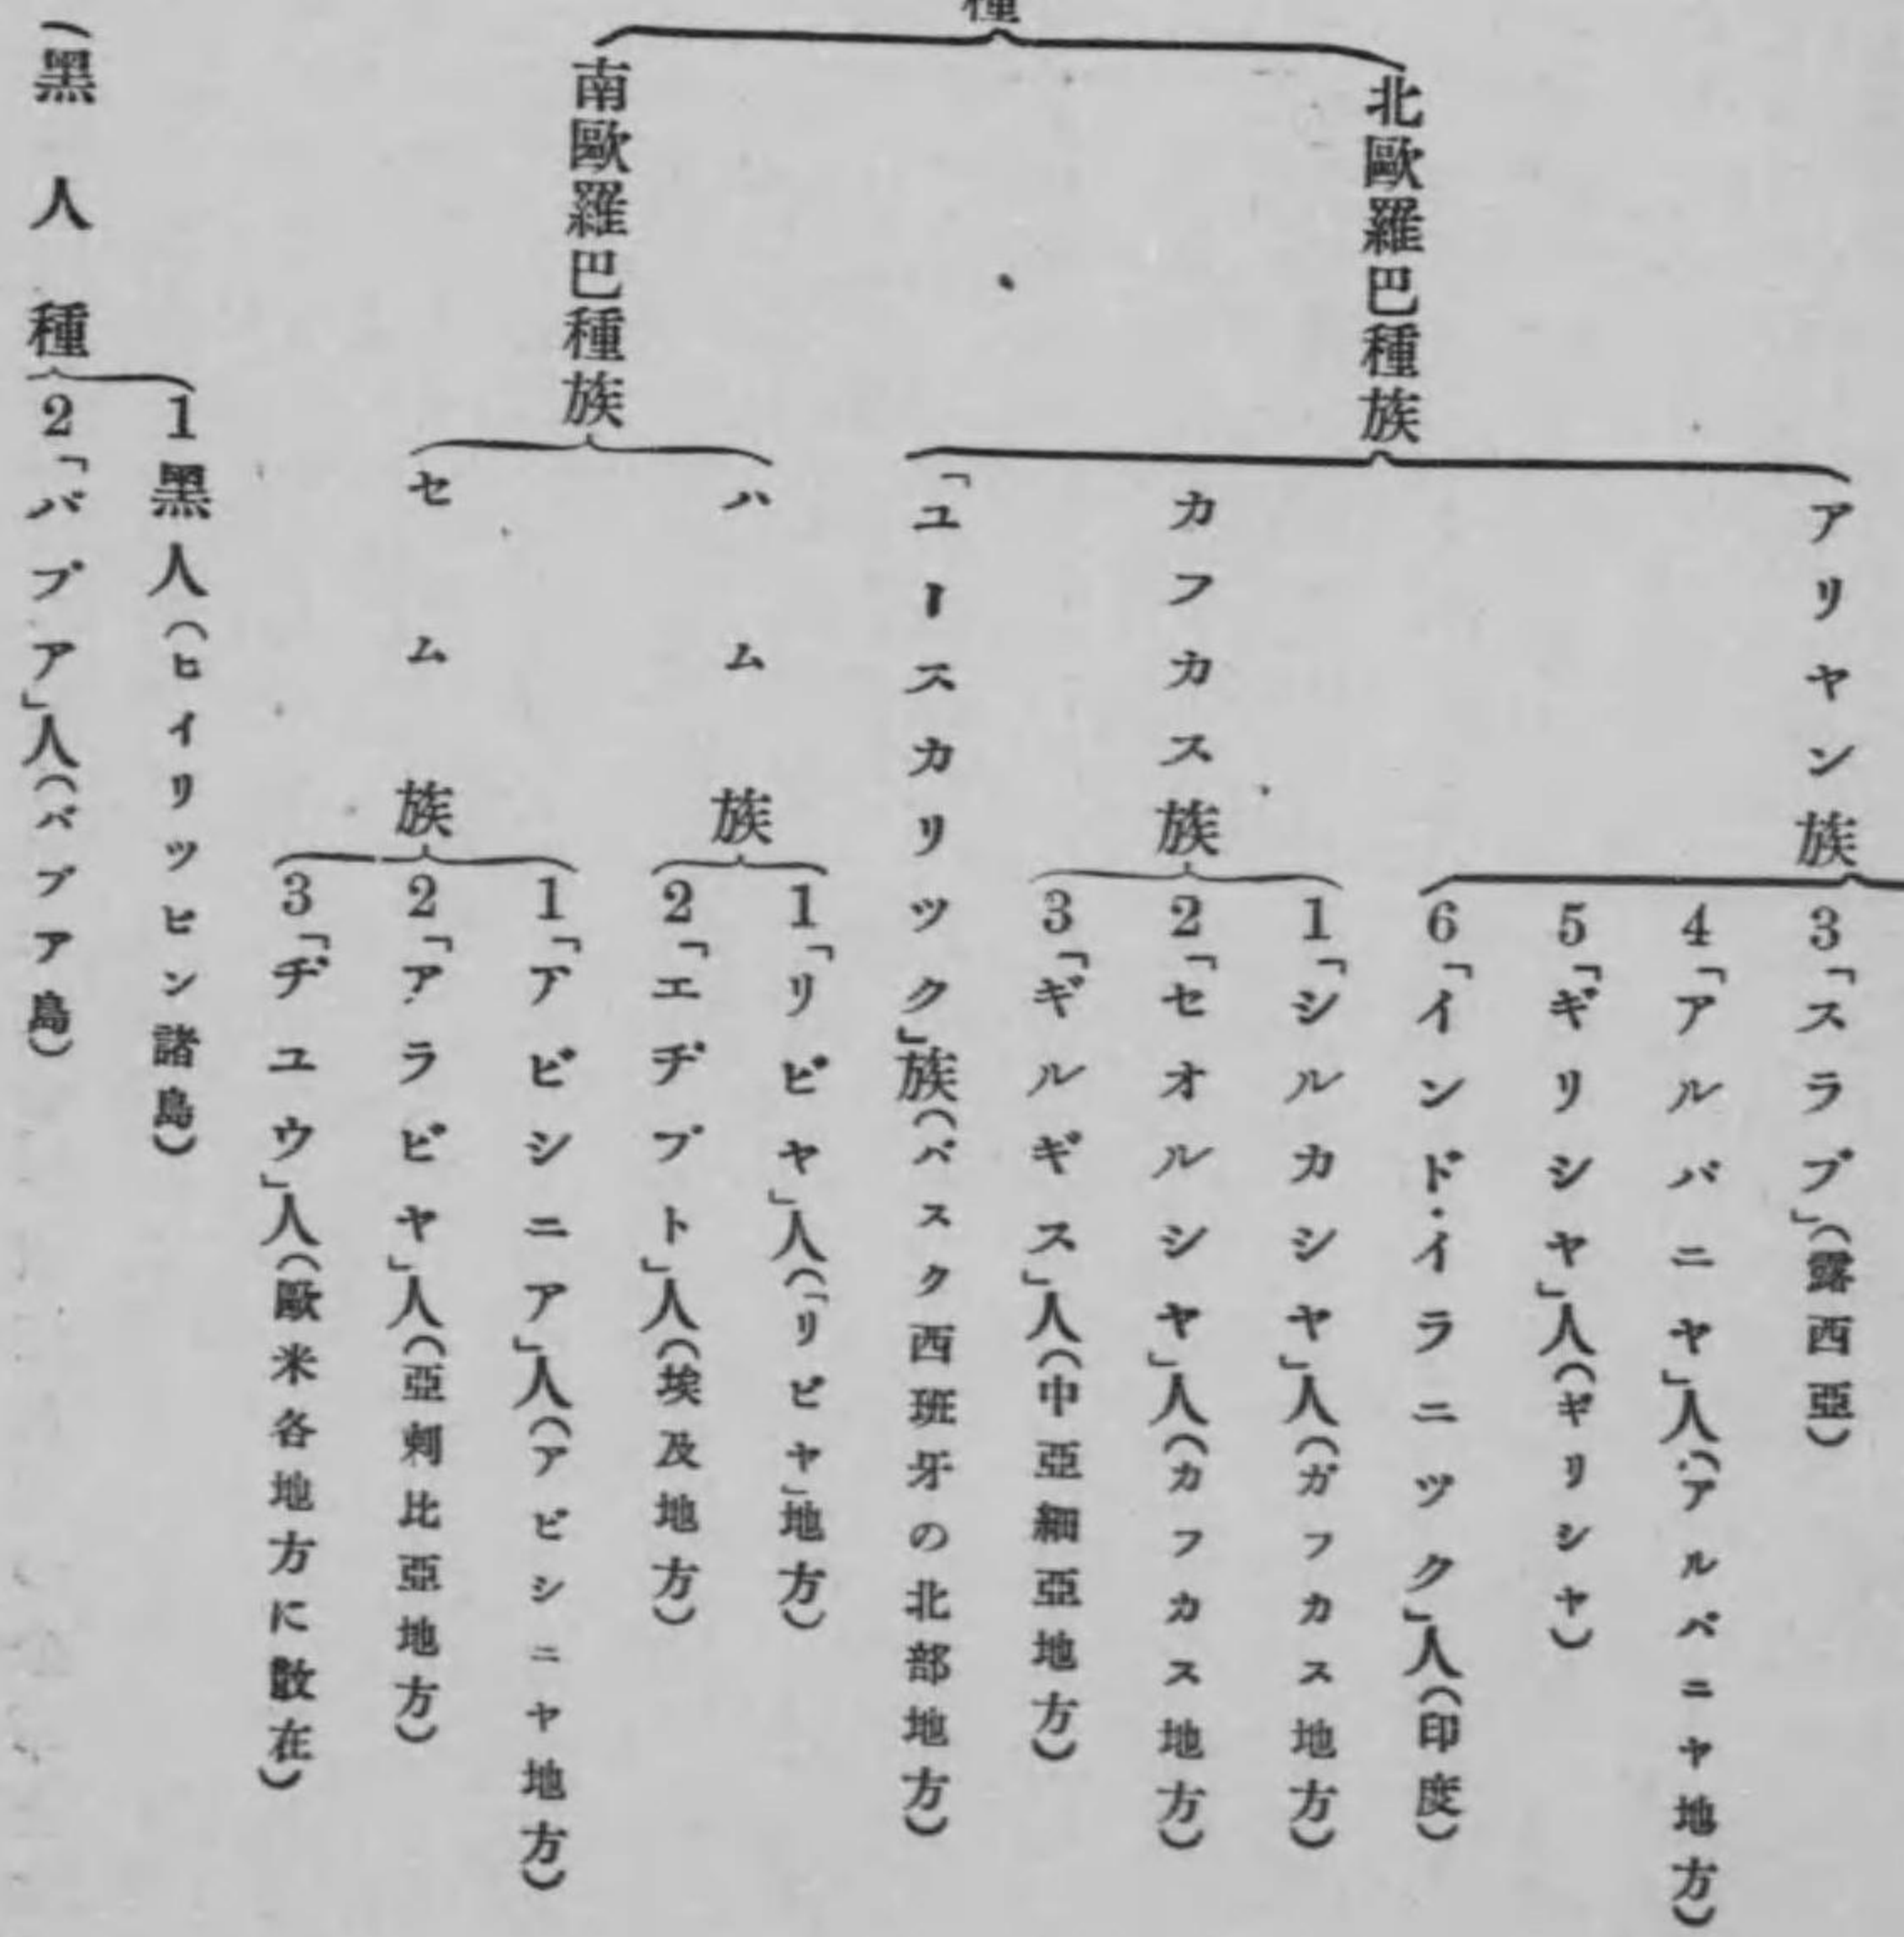 種
北歐羅巴種族
アリヤン族
3「スラブ」(露西亞)
4「アルバニヤ」人(アルバニヤ地方)
5「ギリシヤ」人(ギリシヤ)
6「インド・イラニツク」人(印度)
カフカス族
1「シルカシヤ」人(ガフカス地方)
2「セオルシヤ」人(カフカス地方)
3「ギルギス」人(中亞細亞地方)
「ユースカリツク」族(バスク西班牙の北部地方)
南歐羅巴種族
ハム族
1「リビヤ」人(「リビヤ」地方)
2「エヂプト」人(埃及地方)
セム族
1「アビシニア」人(アビシニヤ地方)
2「アラビヤ」人(亞剌比亞地方)
3「ヂユウ」人(歐米各地方に散在)
黑人種
1黑人(ヒイリツピン諸島)
2「パプア」人(パプア島)